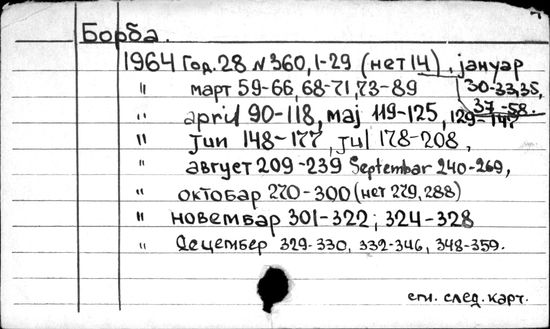 Борба.
1964 Год. 28 N 360, 1-29 (нет 14), јануар
30-33, 35,
37-58.
" март 59-66, 68-71, 73-89
" april 90-118, мај 119-125, 129-147
" јun 148-177, јul 178-208,
" август 209-239 Septembar 240-269,
" октобар 270-300 (нет 279, 288)
" новембар 301-322; 324-328
" децембер 329-330, 332-346, 348-359.
см. след. карт.